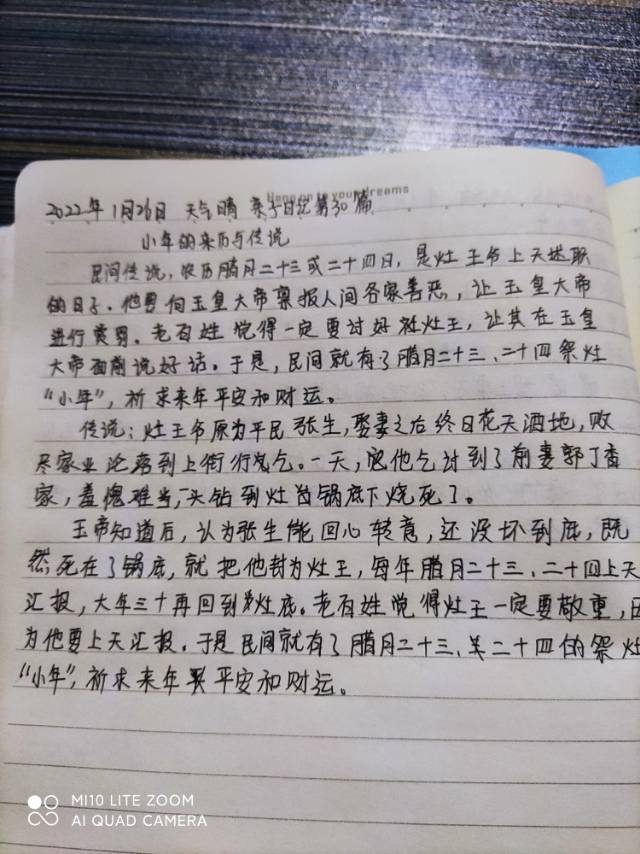 2022年1月26日 天气晴 亲子日记第30篇
小年的来历与传说
民间传说，农历腊月二十三或二十四日，是灶王爷上天述职
的日子。他要向玉皇大帝禀报人间各家善恶，让玉皇大帝
进行赏罚。老百姓觉得一定要讨好灶王，让其在玉皇
大帝面前说好话。于是，民间就有了腊月二十三、二十四祭灶
“小年”，祈求来年平安和财运。
传说：灶王爷原为平民张生，娶妻之后终日花天酒地，败
尽家业沦落到上街行乞。一天，他乞讨到了前妻郭丁香
家，羞愧难当，一头钻到灶锅底下烧死了。
玉帝知道后，认为张生能回心转意，还没坏到底，既
然死在了锅底，就把他封为灶王，每年腊月二十三、二十四上天
汇报，大年三十再回到灶底。老百姓觉得灶王一定要敬重，因
为他要上天汇报。于是民间就有了腊月二十三、二十四的祭灶
“小年”，祈求来年平安和财运。
MI10 LITE ZOOM
AI QUAD CAMERA